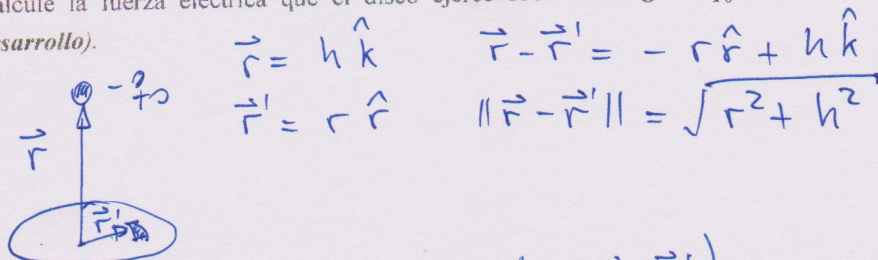 la fuerza eléctrica que el disco
sarrollo).
r⃗ = h k̂    r⃗ - r⃗' = - r r̂ + h k̂
r⃗' = r r̂    ‖r⃗ - r⃗'‖ = √(r² + h²)
-q₀
r⃗
r⃗'